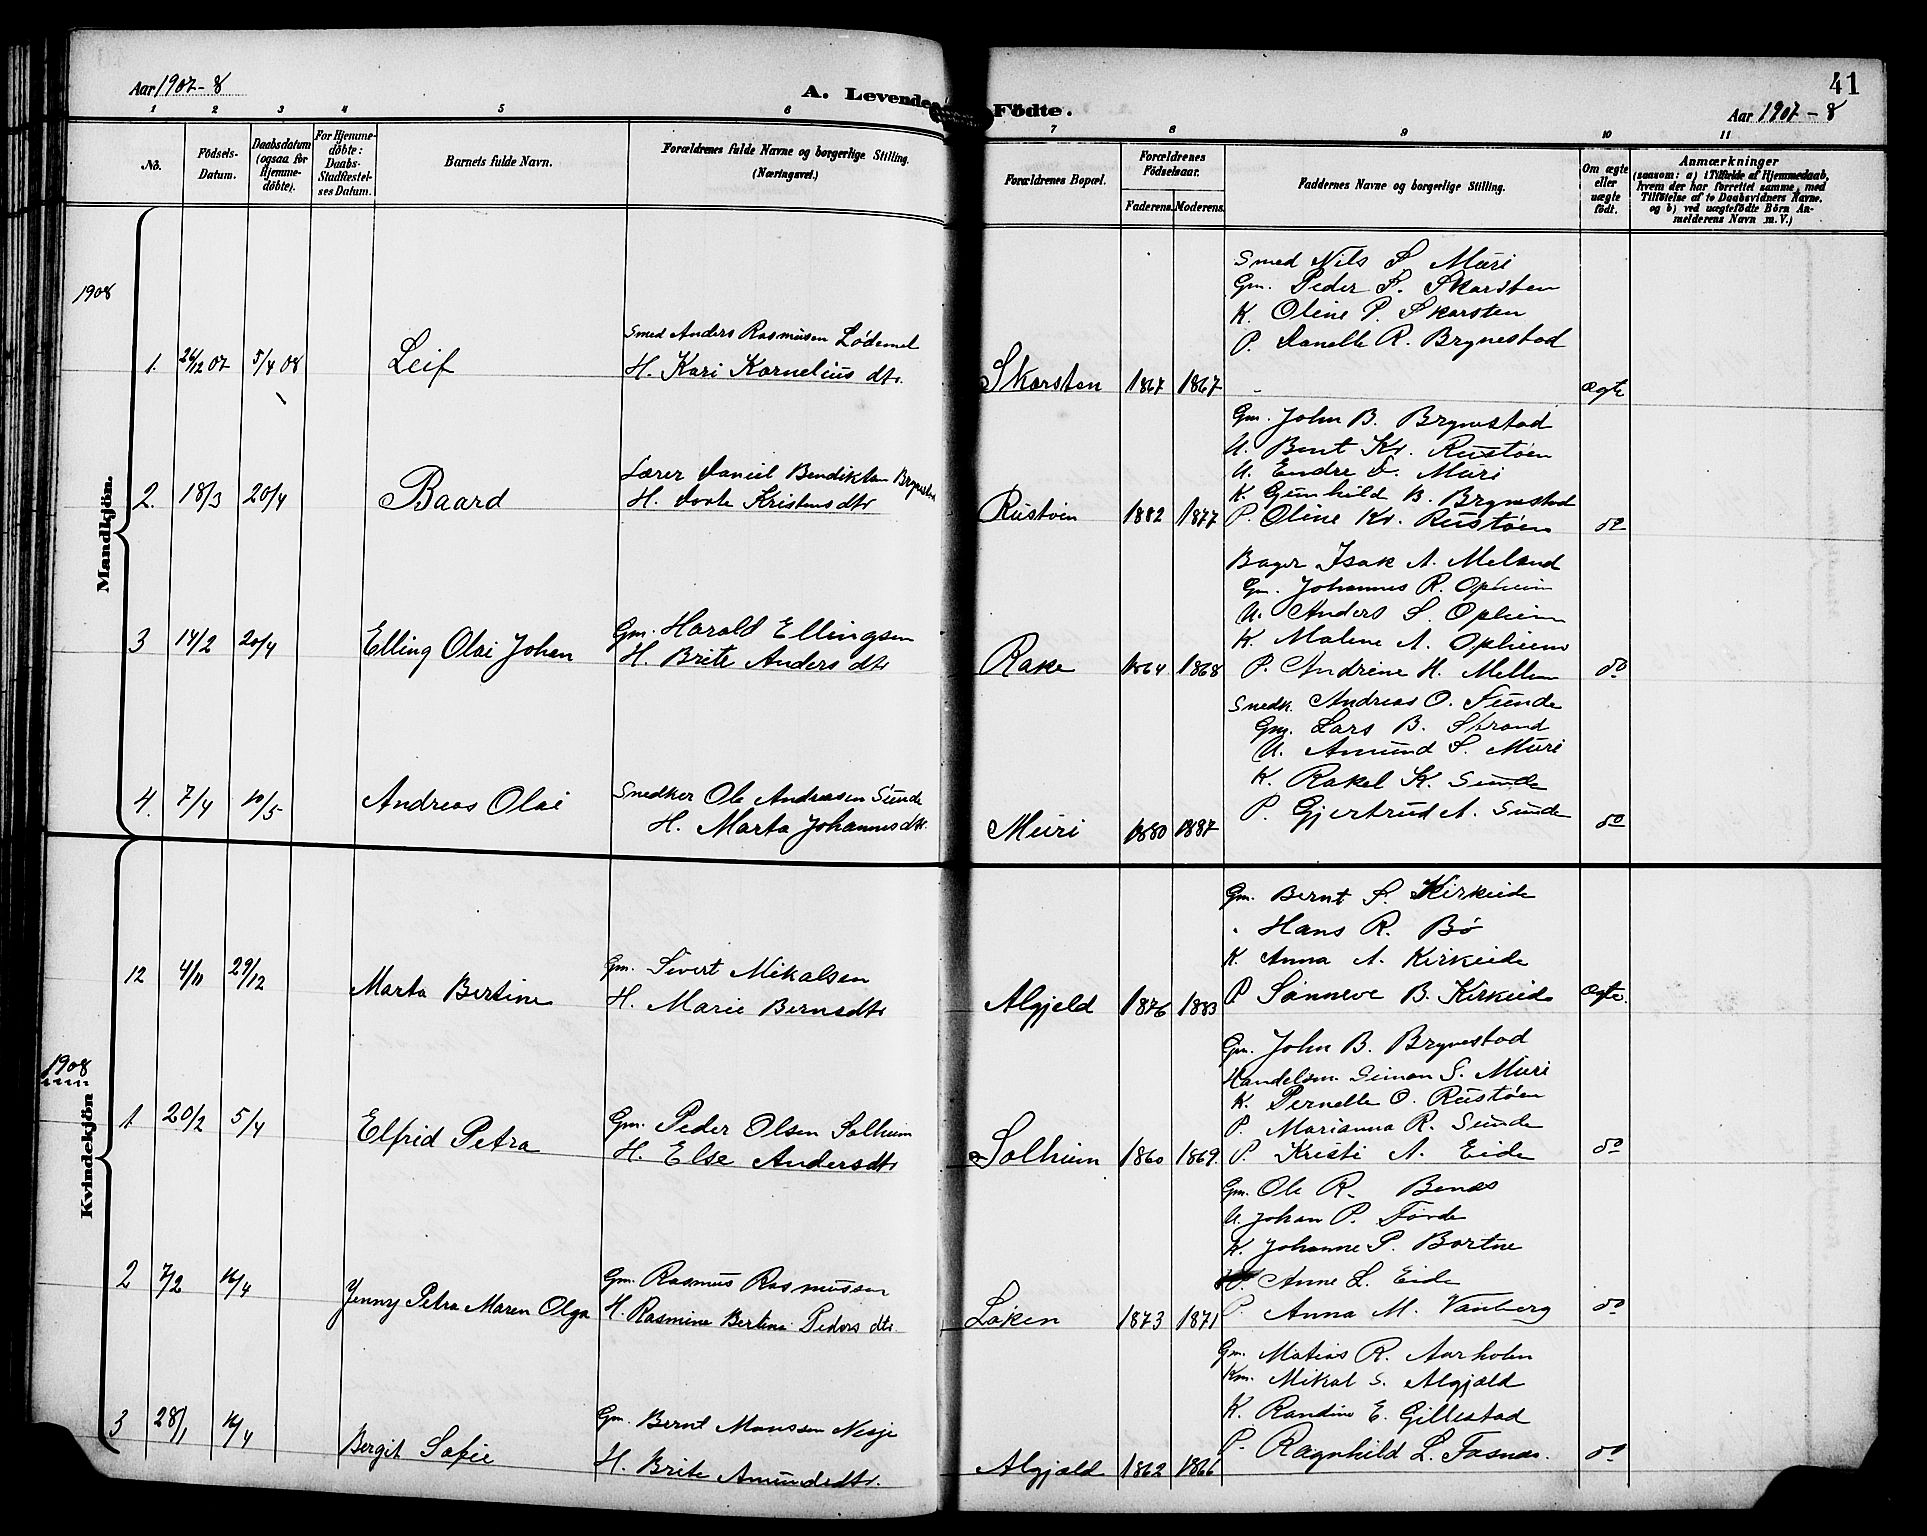 Aar 1907-8
A. Levende Födte.
41
Aar 1907-8
1 2 3 4 5 6 7 8 9 10 11
No.
Födsels-Datum.
Daabsdatum (ogsaa for Hjemme-döbte).
For Hjemme-döbte: Daabs-Stadfæstelses Datum.
Barnets fulde Navn.
Forældrenes fulde Navne og borgerlige Stilling. (Næringsvei.)
Forældrenes Bopæl.
Forældrenes Födselsaar.
Faderens. Moderens.
Faddernes Navne og borgerlige Stilling.
Om ægte eller uægte födt.
Anmærkninger
(saasom: a) i Tilfælde af Hjemmedaab, hvem der har forrettet samme, med Tilföielse af to Daabsvidners Navne, og b) ved uægtefödte Börn Anmelderens Navn m. V.)
Mandkjön.
1908
Smed Nils S. Muri
Gm. Peder S. Skarsten
K. Oline P. Skarsten
P. Danelle R. Brynestad
1. 26/12 07 5/4 08 Leif
Smed Anders Rasmusen Lødemel
H. Kari Kornelius dtr.
Skarsten 1867 1867 ægte
Gm. John B. Brynestad
U. Bent Kr. Rustøen
U. Endre D. Muri
K. Gunhild B. Brynestad
P. Oline Kr. Rustøen
2. 18/3 20/4 Baard
Lærer Daniel Bendiktsen Brynestad
H. Dorte Kristensdtr
Rustøen 1882 1877 do
Bager Isak A. Meland
Gm. Johannes R. Opheim
U. Anders S. Opheim
K. Malene A. Opheim
P. Andrine H. Mellem
3 14/2 20/4 Elling Olai Johan
Gm. Harald Ellingsen
H. Brite Anders dtr
Rake 1864 1868 do
Snedk. Andreas O. Sunde
Gm. Lars B. Strand
U. Amund S. Muri
K. Rakel K. Sunde
P. Gjertrud A. Sunde
4. 7/4 10/5 Andreas Olai
Snedker Ole Andreasen Sunde
H. Marta Johannesdtr.
Muri 1880 1887 do
Kvindekjön
Gm. Bernt S. Kirkeide
" Hans R. Bø
K. Anna A. Kirkeide
P Sønneve B. Kirkeide
12 4/11 29/12 Marta Bertine
Gm. Sivert Mikalsen
H. Marie Bernsdtr
Algjeld 1876 1883 Ægte.
1908
Gm. John B. Brynestad
Handelsm. Simon S. Muri
K. Pernelle O. Rustøen
P. Marianna R. Sunde
P. Kristi A. Eide
1 20/2 5/4 Elfrid Petra
Gm. Peder Olsen Solheim
H. Else Andersdtr
Solheim 1860 1869. do
Gm. Ole R. Benes
U. Johan P. Førde
K. Johanne P. Bortne
Anne L. Eide
P. Anna M. Vanberg
2 7/2 16/4 Jenny Petra Maren Olga
Gm. Rasmus Rasmussen
H. Rasmine Bertine Peders dtr
Løken 1873 1871 do
Gm. Matias R. Aarholen
Km. Mikal S. Algjæld
K. Randine E. Gillestad
P. Ragnhild L. Fosnæs.
3 28/1 16/4 Bergit Sofie
Gm. Bernt Monssen Nesje
H. Brite Amundsdtr.
Algjæld 1862 1866 do